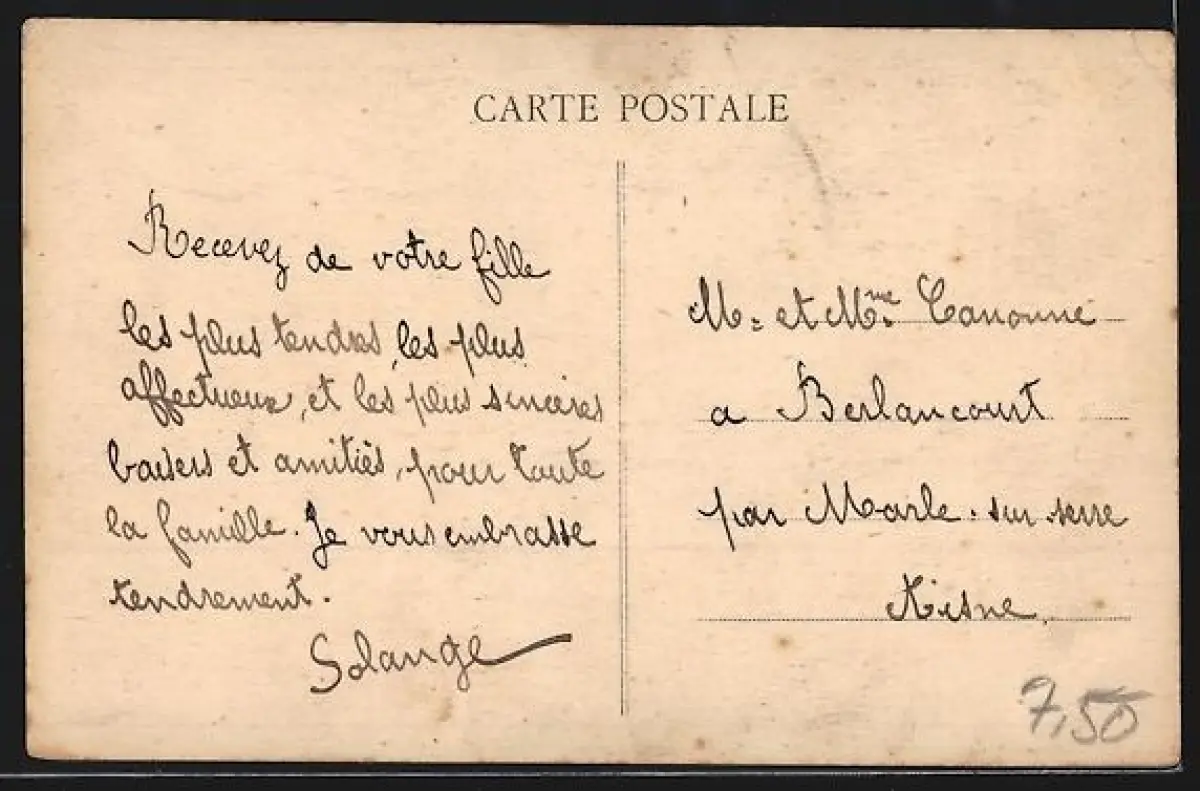 CARTE POSTALE
Recevez de votre fille
les plus tendres, les plus
affectueux, et les plus sincères
baisers et amitiés, pour toute
la famille. Je vous embrasse
tendrement.
Solange
M. et Mme Canonne
a Berlancourt
par Marle-sur-serre
Aisne
7,50